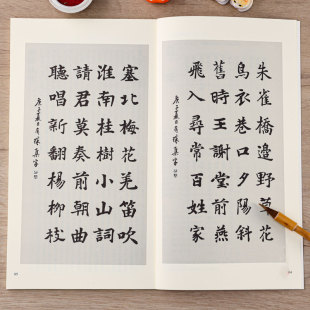 朱雀橋邊野草花
烏衣巷口夕陽斜
舊時王謝堂前燕
飛入尋常百姓家
庚子夏日 集字
塞北梅花羌笛吹
淮南桂樹小山詞
請君莫奏前朝曲
聽唱新翻楊柳枝
庚子夏日 集字